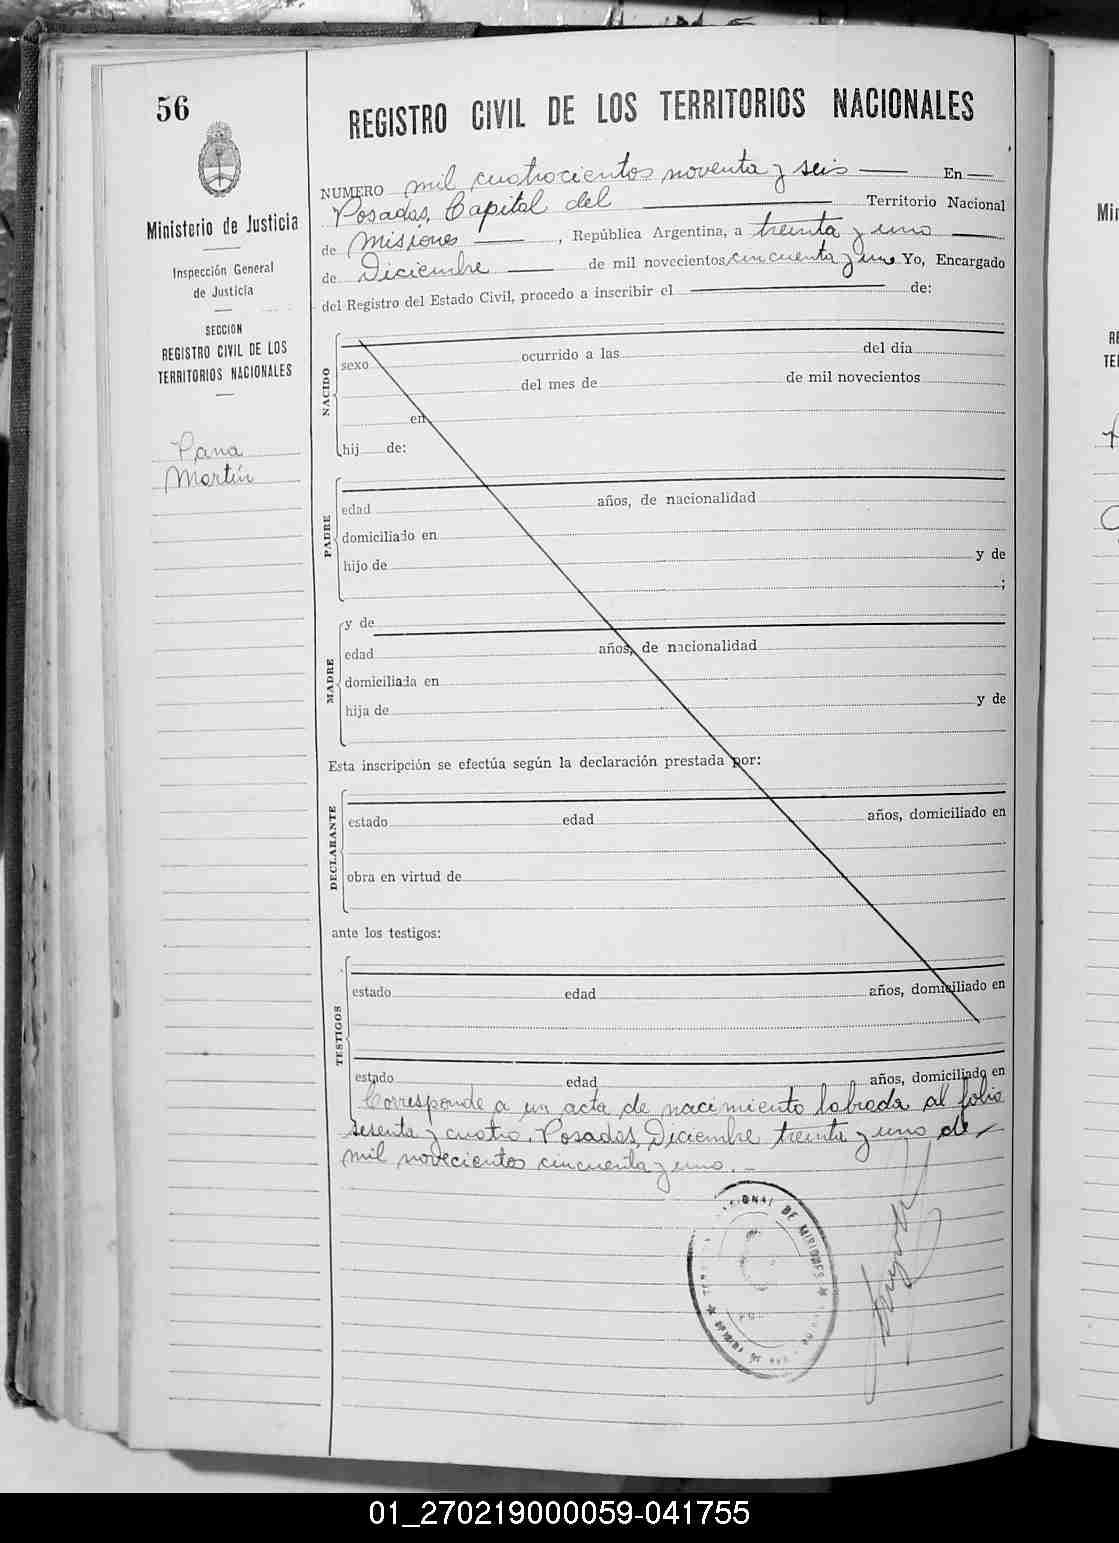 56
Ministerio de Justicia
Inspección General
de Justicia
SECCIÓN
REGISTRO CIVIL DE LOS
TERRITORIOS NACIONALES
Pana
Martín
REGISTRO CIVIL DE LOS TERRITORIOS NACIONALES
NUMERO mil cuatrocientos noventa y seis En
Posadas, Capital del Territorio Nacional
de Misiones, República Argentina, a treinta y uno
de Diciembre de mil novecientos cincuenta y uno Yo, Encargado
del Registro del Estado Civil, procedo a inscribir el de:
NACIDO
sexo ocurrido a las del día
del mes de de mil novecientos
en
hij de:
PADRE
edad años, de nacionalidad
domiciliado en
hijo de y de
;
MADRE
y de
edad años, de nacionalidad
domiciliada en
hija de y de
Esta inscripción se efectúa según la declaración prestada por:
DECLARANTE
estado edad años, domiciliado en
obra en virtud de
ante los testigos:
TESTIGOS
estado edad años, domiciliado en
estado edad años, domiciliado en
Corresponde a un acta de nacimiento labrada al folio
sesenta y cuatro. Posadas, Diciembre treinta y uno de
mil novecientos cincuenta y uno.
DE MISIONES
01_270219000059-041755